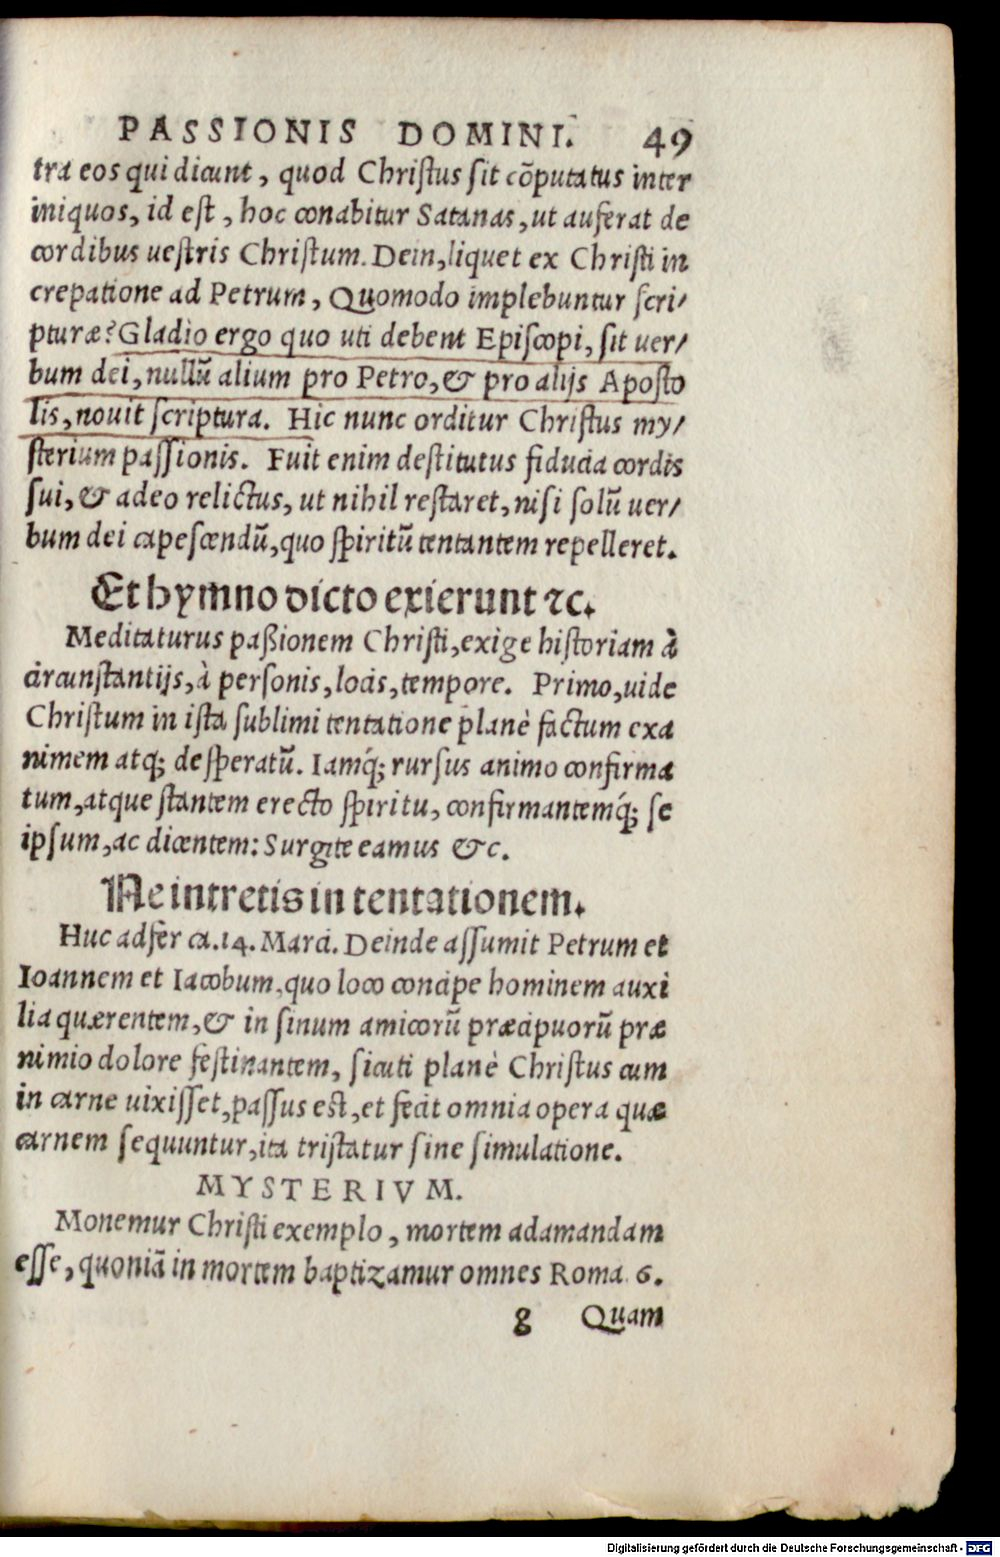 PASSIONIS DOMINI. 49
tra eos qui dicunt, quod Chriſtus ſit cõputatus inter
iniquos, id eſt, hoc conabitur Satanas, ut auferat de
cordibus ueſtris Chriſtum. Dein, liquet ex Chriſti in
crepatione ad Petrum, Quomodo implebuntur ſcri/
pturæ? Gladio ergo quo uti debent Epiſcopi, ſit uer/
bum dei, nullũ alium pro Petro, & pro alijs Apoſto
lis, nouit ſcriptura. Hic nunc orditur Chriſtus my/
ſterium paſſionis. Fuit enim deſtitutus fiducia cordis
ſui, & adeo relictus, ut nihil reſtaret, niſi ſolũ uer/
bum dei capeſcendũ, quo ſpiritũ tentantem repelleret.
Et hymno dicto exierunt ⁊c.
Meditaturus paßionem Chriſti, exige hiſtoriam à
circunſtantijs, à perſonis, locis, tempore. Primo, uide
Chriſtum in iſta ſublimi tentatione planè factum exa
nimem atq; deſperatũ. Iamq́; rurſus animo confirma
tum, atque ſtantem erecto ſpiritu, confirmantemq́; ſe
ipſum, ac dicentem: Surgite eamus &c.
Ne intretis in tentationem.
Huc adfer ca. 14. Marci. Deinde aſſumit Petrum et
Ioannem et Iacobum, quo loco concipe hominem auxi
lia quærentem, & in ſinum amicorũ præcipuorũ præ
nimio dolore feſtinantem, ſicuti planè Chriſtus cum
in carne uixiſſet, paſſus eſt, et fecit omnia opera quæ
carnem ſequuntur, ita triſtatur ſine ſimulatione.
MYSTERIVM.
Monemur Chriſti exemplo, mortem adamandam
eſſe, quoniã in mortem baptizamur omnes Roma. 6.
g Quam
Digitalisierung gefördert durch die Deutsche Forschungsgemeinschaft - DFG